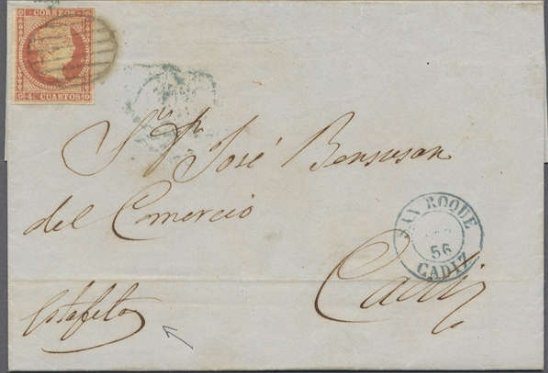 CORREOS
4 CUARTOS
Sr. Dn. José Bensusan
del Comercio
SAN ROQUE
56
CADIZ
Cadiz
Estafeta